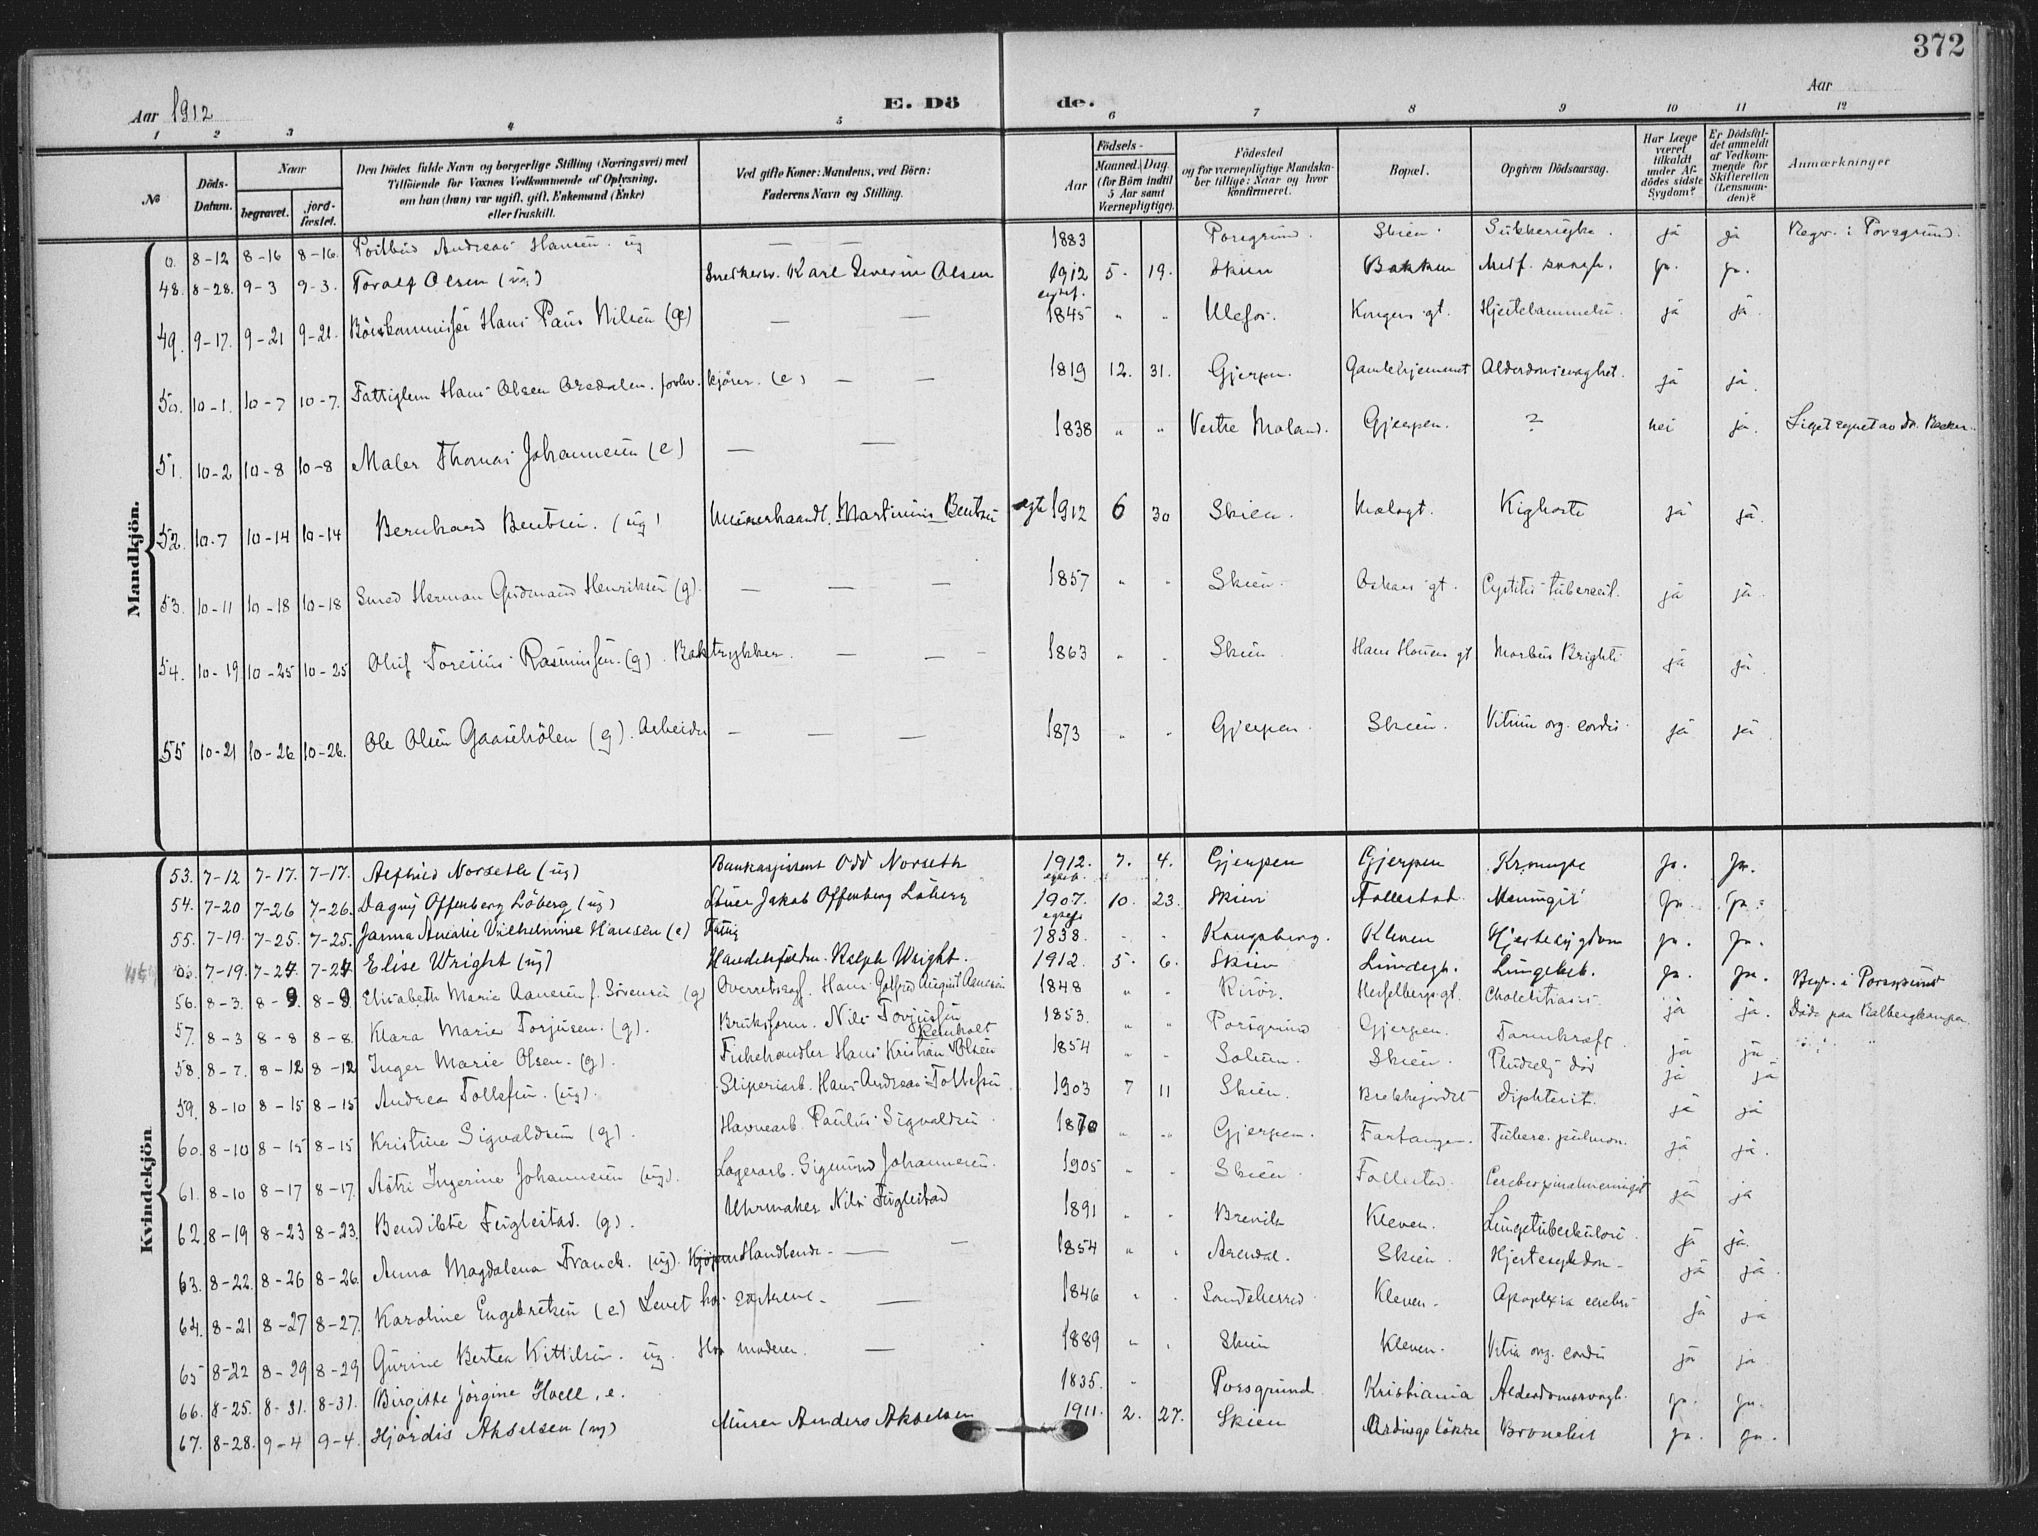 372
Aar 1912
E. Dö
de.
Aar
1 2 3 4 5 6 7 8 9 10 11 12
№
Döds-Datum.
Naar
begravet.
jord-fæstet.
Den Dödes fulde Navn og borgerlige Stilling (Næringsvei) med
Tilföiende for Voxnes Vedkommende af Oplysning,
om han (hun) var ugift, gift, Enkemand (Enke)
eller fraskilt.
Ved gifte Koner: Mandens, ved Börn:
Faderens Navn og Stilling.
Födsels-
Aar
Maaned. Dag.
(for Börn indtil
5 Aar samt
Værnepligtige).
Födested
og for værnepligtige Mandskaber tillige: Naar og hvor konfirmeret.
Bopæl.
Opgiven Dödsaarsag.
Har Læge været tilkaldt under Afdödes sidste Sygdom?
Er Dödsfaldet anmeldt af Vedkommende for Skifteretten (Lensmanden)?
Anmærkninger
Mandkjön.
0. 8-12 8-16 8-16. Postbud Andreas Hansen. ug — — 1883 Porsgrund. Skien. Sukkersyke. ja ja Begr. i Porsgrund.
48. 8-28. 9-3 9-3. Toralf Olsen (ug) Snedkersv. Karl Severin Olsen 1912 egtef. 5. 19. Skien Bakken Medf. svagh. ja. ja.
49. 9-17. 9-21 9-21. Hans Paus Nilsen (g) — — 1845 " " Ulefos. Kongens gt. Hjertelammelse ja ja.
50. 10-1. 10-7 10-7. Fattiglem Hans Olsen forhv. kjörer. (e) — — 1819 12. 31. Gjerpen. Gamlehjemmet Alderdomssvaghet. ja ja.
51. 10-2 10-8 10-8 Maler Thomas Johannesen (e) — — 1838 " " Vestre Moland. Gjerpen. ? nei ja. Liget synet av dr. Becker.
52. 10-7 10-14 10-14 Bernhard Bentsen. (ug) Murerhaandl. Martinius Bentsen egte 1912 6 30 Skien. Kighoste ja ja.
53. 10-11 10-18 10-18 Smed Herman Gudmund Henriksen (g). — — — 1857 " " Skien. Oskars gt. Cystitis tubercul. ja ja.
54. 10-19 10-25 10-25 Oluf Rasmussen. (g). Boktrykker. — — - 1863 " " Skien. Hans Houens gt Morbus Brighti ja ja.
55 10-21 10-26 10-26. Ole Olsen Gaasehölen (g). Arbeider — — — 1873 " " Gjerpen. Skien. Vitium org. cordis. ja ja.
Kvindekjön
53. 7-12 7-17. 7-17. Alfhild Norseth (ug) Bankassistent Odd Norseth 1912. egteb. 7. 4. Gjerpen Gjerpen Krampe ja. ja.
54. 7-20 7-26 7-26. Dagny Offenberg Löberg (ug) Jakob Offenberg Löberg 1907. egtef. 10. 23. Skien Follestad. Meningit ja. ja.
55. 7-19. 7-25. 7-25. Janna Amalie Vilhelmine Hansen (e) Fattig 1838. - - Kongsberg. Kleven Hjertesygdom ja. ja.
7-19. 7-24 7-24 Elise Wright (ug) Ralph Wright. 1912. 5. 6. Skien Lundegt. Lungebet. ja. ja. Begr. i Porsgrund
56. 8-3. 8-9. 8-9 Elisabeth Marie Aanesen f. Sörensen (g) Overretssagf. Hans Gotfred August Aanesen 1848 " " Risör. Hesselbergs gt. Cholelitiasis ja ja. Döde paa Kalbergkampen
57. 8-3 8-8 8-8. Klara Marie Torjusen. (g). Bruksform. Nils Torjussen 1853. " " Porsgrund Gjerpen. Tarmkræft. ja ja
58. 8-7. 8-12 8-12 Inger Marie Olsen. (g). Fiskehandler Hans Kristian Reinholt Olsen 1854 " " Solum. Skien. Pludselig död ja ja
59. 8-10 8-15 8-15 Andrea Tollefsen. (ug). Sliperiarb. Hans Andreas Tollefsen 1903 7 11 Skien. Brekkejordet Diphterit. ja ja
60. 8-10 8-15 8-15 Kristine Sigvaldsen (g). Havnearb. Paulus Sigvaldsen. 1870 " " Gjerpen. Fartangen. Tuberc. pulmon. ja ja.
61. 8-10 8-17 8-17. Astri Ingerine Johannesen (ug). Lagerarb. Sigmund Johannesen. 1905 " " Skien. Follestad. Cerebrospinalmeningit ja ja
62. 8-19 8-23 8-23. Bendikte Fuglestad. (g). Uhrmaker Nils Fuglestad 1891 " " Brevik Kleven. Lungetuberkulose. ja ja.
63. 8-22. 8-26 8-26. Anna Magdalena Franck. (ug). Handlende. — — 1854 " " Arendal. Skien. Hjertesykdom - ja ja.
64. 8-21 8-27 8-27. Karoline Engebretsen (e) Levet hos — 1846 " " Sandeherred. Kleven. Apoplexia cerebri ja ja
65 8-22 8-29 8-29 Gurine Bertea Kittilsen. ug. Hos moderen. — 1889 " " Skien Kleven. Vitia org. cordis ja ja.
66. 8-25. 8-31. 8-31. Birgitte Jörgine Hoell. e. 1835. " Porsgrund Kristiania Alderdomssvagh. ja. ja.
67. 8-28. 9-4 9-4. Hjördis Akselsen (ug) Murer Anders Akselsen 1911. 2. 27. Skien Bronchit ja. ja.